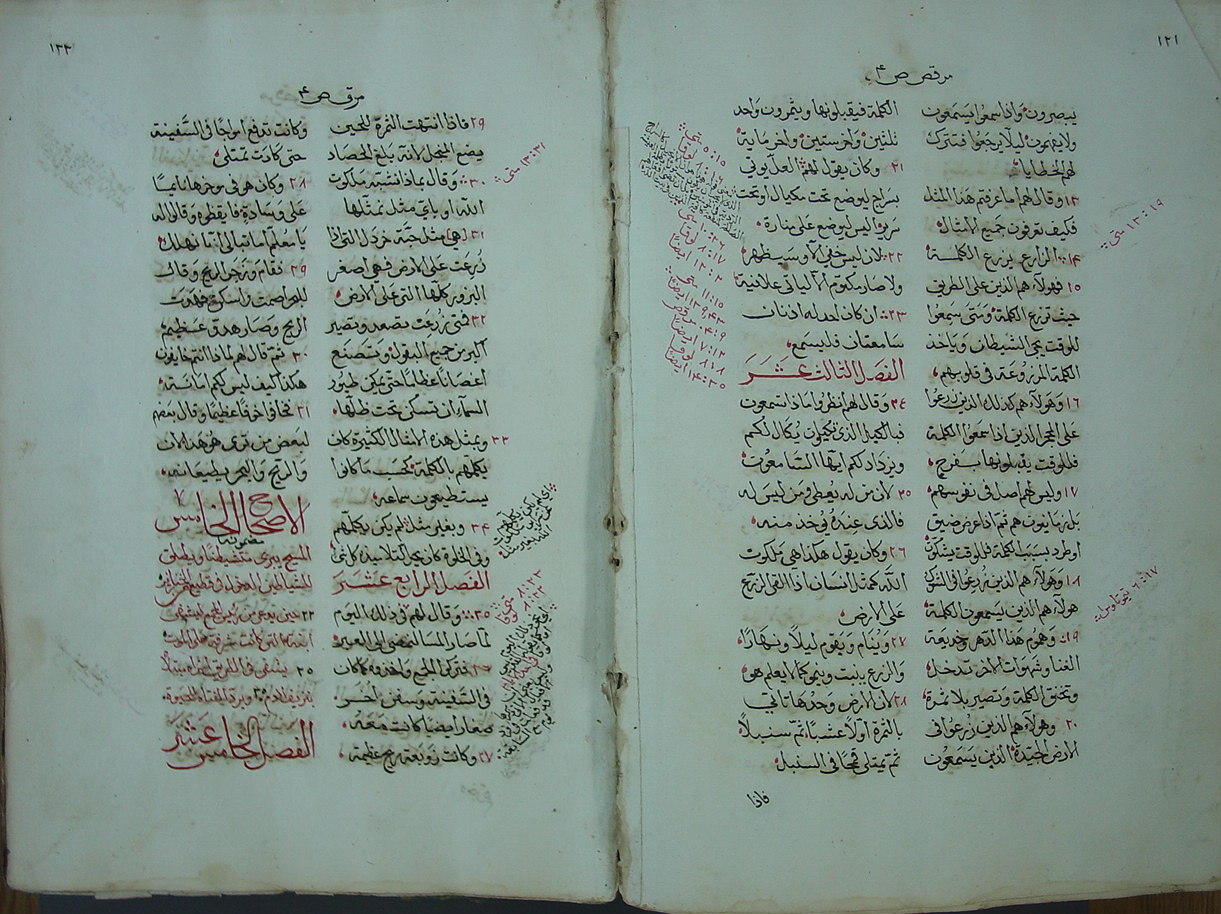 ١٢١
مرقص ص ٤
يبصرون واذا سمعوا فيسمعون
ولا يفهمون ليلّا يرجعوا فتترك
لهم الخطايا
١٣ وقال لهم اما عرفتم هذا المثل
فكيف تعرفون جميع الامثال
١٤ الزارع يزرع الكلمة
١٥ فهولآء هم الذين على الطريق
حيث تزرع الكلمة ومتى سمعوا
للوقت يجي الشيطان وياخذ
الكلمة المزروعة في قلوبهم
١٦ وهولآء هم كذلك الذين زرعوا
على الحجر الذين اذا سمعوا الكلمة
فللوقت يقبلونها بفرح
١٧ وليس لهم اصل في نفوسهم
بل زمانيون هم ثم اذا عرض ضيق
او طرد بسبب الكلمة فللوقت يشكون
١٨ وهولآء هم الذين زرعوا في الشوك
هولآء هم الذين يسمعون الكلمة
١٩ وهموم هذا الدهر وخديعة
الغنا وشهوات الاخر تدخل
وتخنق الكلمة وتصير بلا ثمرة
٢٠ وهولآء هم الذين زرعوا في
الارض الجيّدة الذين يسمعون
١٩ : ١٣ متى
١٧ : ٦
الكلمة فيقبلونها ويثمرون واحد
ثلثين واخر ستين واخر ماية
٢١ وكان يقول لهم العلّ يوتي
بسراج ليوضع تحت مكيال او تحت
سرير اليس ليوضع على منارة
٢٢ لان ليس خفي الّا وسيظهر
ولا صار مكتوم الّا لياتي علانية
٢٣ ان كان لاحد له اذنان
سامعتان فليسمع
الفصل الثالث عشر
٢٤ وقال لهم انظروا ماذا تسمعون
فبالكيل الذي تكيلون يكال لكم
ويزداد لكم ايها السّامعون
٢٥ لان من له يعطى ومن ليس له
فالذي عنده يوخذ منه
٢٦ وكان يقول هكذا هي ملكوت
اللّه كمثل انسان اذا القى الزرع
على الارض
٢٧ وينام ويقوم ليلًا ونهارًا
والزرع ينبت وينمو كما لا يعلم هو
٢٨ لان الارض وحدها تاتي
بالثمرة اولًا عشبًا ثم سنبلًا
ثم تمتلي قمحًا في السنبل
فاذا
١٥ : ٥ متى
١٦ : ٨ لوقا
٢٦ : ١٠ متى
١٧ : ٨ لوقا
٢ : ١٢ ايضًا
١٥ : ١١ متى
٤٣،٩ : ١٣ ايضًا
٩ : ٤ مرقص
١٣ : ٧ ايضًا
٨ : ٨ لوقا
٣٥ : ١٤ ايضًا
١٢٢
مرقص ص ٤
٢٩ فاذا انتهت الثمرة للحين
يضع المنجل لانه بلغ الحصاد
٣٠ وقال بماذا نشبه ملكوت
اللّه او باي مثل نمثلها
٣١ هي مثل حبّة خردل التي اذا
زرعت على الارض فهي اصغر
البزور كلها التي على الارض
٣٢ فمتى زرعت تصعد وتصير
اكبر من جميع البقول وتصنع
اغصانًا عظامًا حتى يمكن طيور
السمآء ان تسكن تحت ظلها
٣٣ وبمثل هذه الامثال الكثيرة كان
يكلّمهم بالكلمة كحسب ما كانوا
يستطيعون سماعه
٣٤ وبغير مثل لم يكن يكلّمهم
وفي الخلوة كان يحل لتلاميذه كل شي
الفصل الرابع عشر
٣٥ وقال لهم في ذلك اليوم
لما صار المسا لنمضي الى العبر
٣٦ فتركوا الجمع واخذوه كما كان
في السّفينة وسفن اخر
صغار ايضًا كانت معه
٣٧ وكانت زوبعة ريح عظيمة
٣١ : ١٣ متى
٢٣ : ٨ متى
٢٢ : ٨ لوقا
وكانت تدفع امواجًا في السّفينة
حتى كادت تمتلي
٣٨ وكان هو في موخرها نايمًا
على وسادة فايقظوه وقالوا له
يا معلّم اما تبالي اننا نهلك
٣٩ فقام وزجر الريح وقال
للبحر اصمت واسكن فهدت
الريح وصار هدوّ عظيم
٤٠ ثم قال لهم لماذا انتم خايفون
هكذا كيف ليس لكم امانة
٤١ فخافوا خوفًا عظيمًا وقال بعضهم
لبعض من ترى هو هذا لان
والريح والبحر يطيعانه
الاصحاح الخامس
مضمونه
المسيح يبري متشيطنًا ويطلق
للشياطين الدخول في قطيع الخنازير
٢٢
٢٥ يشفي في الطريق امراة مبتلاة
بنزيف الدم ٣٥ ويرد الفتاة للحيوة
الفصل الخامس عشر